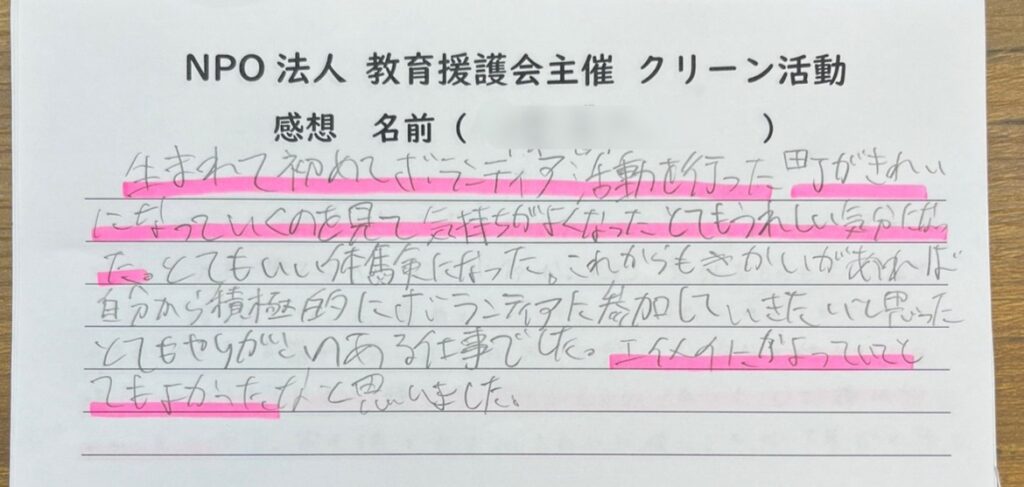 NPO 法人 教育援護会主催 クリーン活動
感想 名前 ( )
生まれて初めてボランティア活動を行った 町がきれい
になっていくのを見て気持ちがよくなったとてもうれしい気分になっ
た。とてもいい体験になった。これからもきかいがあれば
自分から積極的にボランティアに参加していきたいと思った
とてもやりがいのある仕事でした。エイメイにかよっていてと
てもよかったなと思いました。